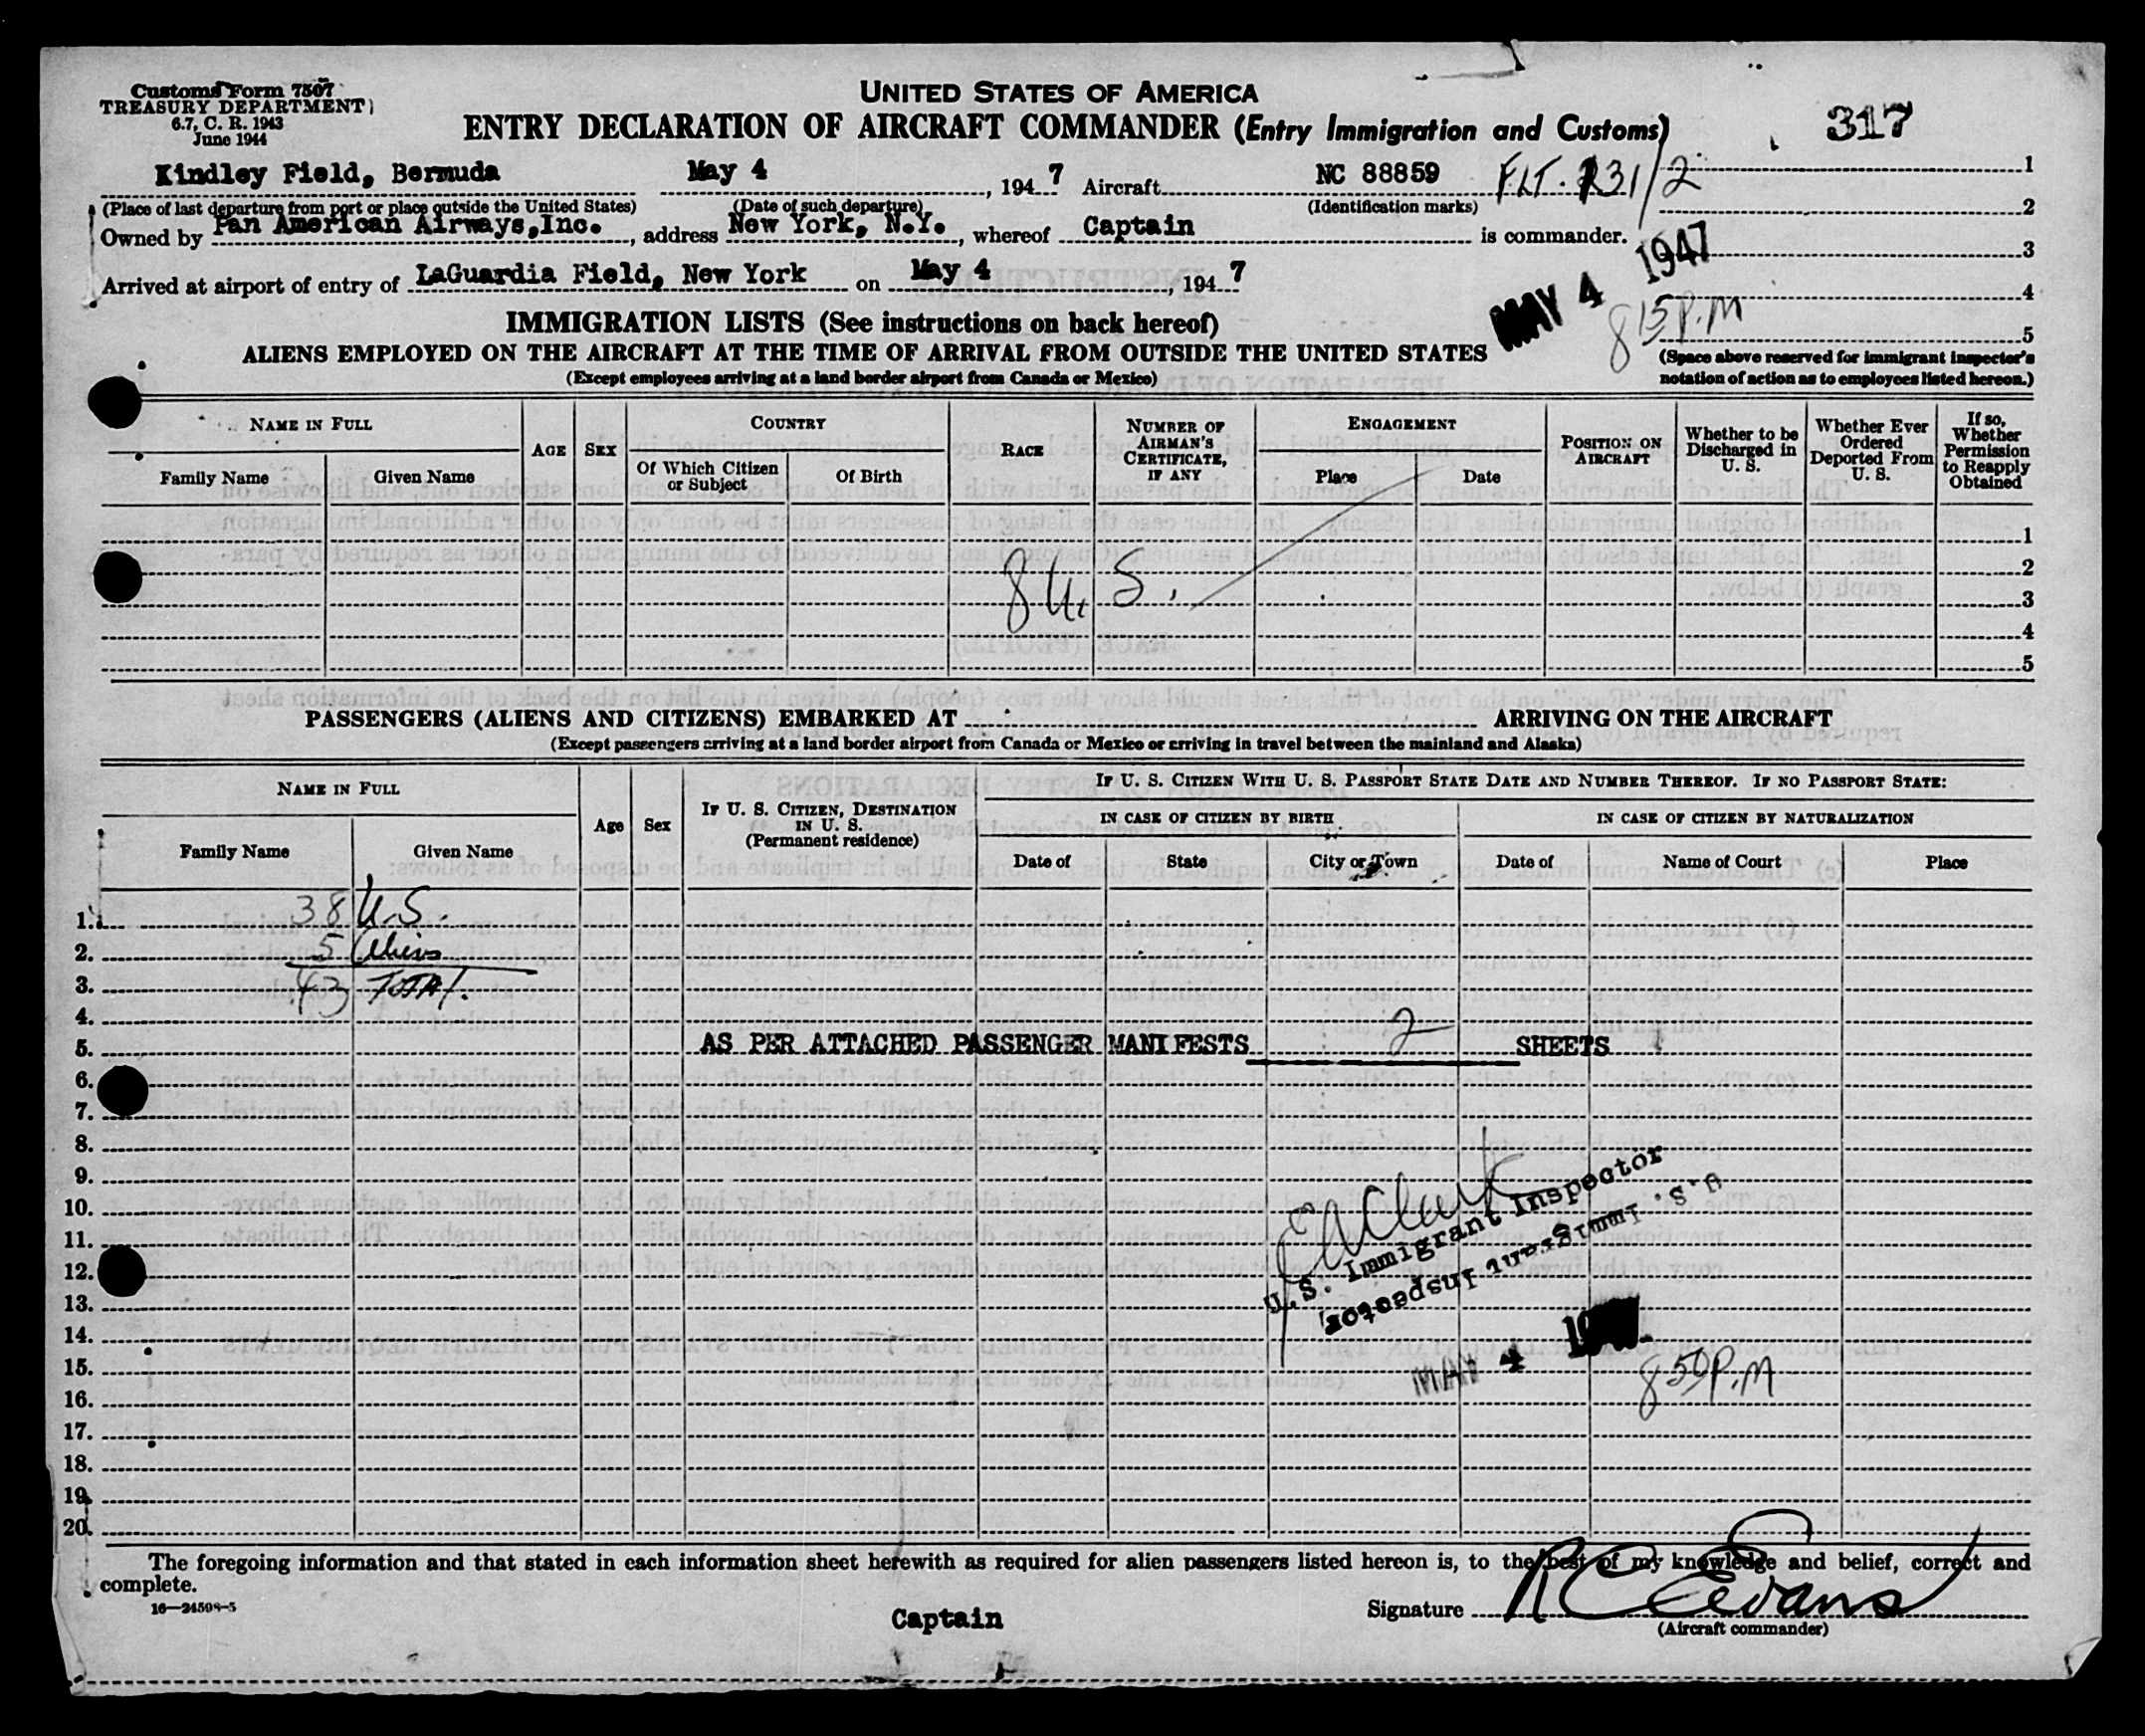 Customs Form 7507
TREASURY DEPARTMENT
6.7, C. R. 1943
June 1944
UNITED STATES OF AMERICA
ENTRY DECLARATION OF AIRCRAFT COMMANDER (Entry Immigration and Customs)
317
Kindley Field, Bermuda May 4, 1947 Aircraft NC 88859 FLT. 131/2 1
(Place of last departure from port or place outside the United States) (Date of such departure) (Identification marks) 2
Owned by Pan American Airways, Inc., address New York, N.Y., whereof Captain is commander.
3
Arrived at airport of entry of LaGuardia Field, New York on May 4, 1947
MAY 4 1947
4
8 15 P.M
5
IMMIGRATION LISTS (See instructions on back hereof)
ALIENS EMPLOYED ON THE AIRCRAFT AT THE TIME OF ARRIVAL FROM OUTSIDE THE UNITED STATES
(Except employees arriving at a land border airport from Canada or Mexico)
(Space above reserved for immigrant inspector's
notation of action as to employees listed hereon.)
NAME IN FULL
Family Name
Given Name
AGE
SEX
COUNTRY
Of Which Citizen
or Subject
Of Birth
RACE
NUMBER OF
AIRMAN'S
CERTIFICATE,
IF ANY
ENGAGEMENT
Place
Date
POSITION ON
AIRCRAFT
Whether to be
Discharged in
U. S.
Whether Ever
Ordered
Deported From
U. S.
If so,
Whether
Permission
to Reapply
Obtained
1
2
8 U. S.
3
4
5
PASSENGERS (ALIENS AND CITIZENS) EMBARKED AT ARRIVING ON THE AIRCRAFT
(Except passengers arriving at a land border airport from Canada or Mexico or arriving in travel between the mainland and Alaska)
NAME IN FULL
Family Name
Given Name
Age
Sex
IF U. S. CITIZEN, DESTINATION
IN U. S.
(Permanent residence)
IF U. S. CITIZEN WITH U. S. PASSPORT STATE DATE AND NUMBER THEREOF. IF NO PASSPORT STATE:
IN CASE OF CITIZEN BY BIRTH
IN CASE OF CITIZEN BY NATURALIZATION
Date of
State
City or Town
Date of
Name of Court
Place
1. 38 U.S.
2. 5 Aliens
3. 43 TOTAL
4.
5. AS PER ATTACHED PASSENGER MANIFESTS 2 SHEETS
6.
7.
8.
9.
10.
11.
12.
13.
14.
15.
16.
17.
18.
19.
20.
EA Clark
U.S. Immigrant Inspector
U.S. Immigrant Inspector
MAY 4
8 50 P.M
The foregoing information and that stated in each information sheet herewith as required for alien passengers listed hereon is, to the best of my knowledge and belief, correct and
complete.
16—24598-5
Captain
Signature R C Evans
(Aircraft commander)